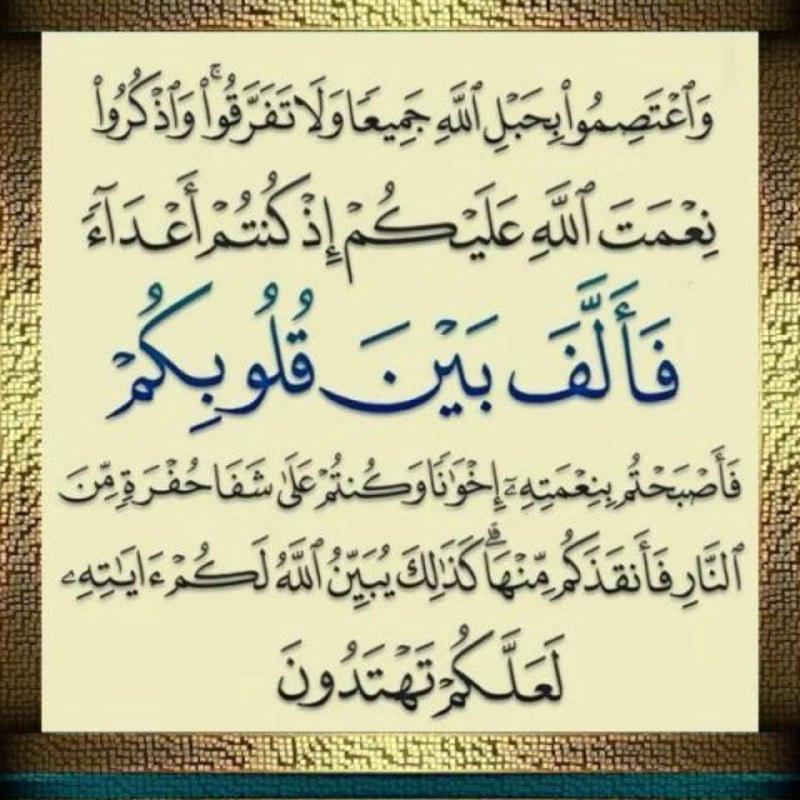 وَٱعْتَصِمُوا۟ بِحَبْلِ ٱللَّهِ جَمِيعًا وَلَا تَفَرَّقُوا۟ ۚ وَٱذْكُرُوا۟
نِعْمَتَ ٱللَّهِ عَلَيْكُمْ إِذْ كُنتُمْ أَعْدَآءً
فَأَلَّفَ بَيْنَ قُلُوبِكُمْ
فَأَصْبَحْتُم بِنِعْمَتِهِۦٓ إِخْوَٰنًا وَكُنتُمْ عَلَىٰ شَفَا حُفْرَةٍ مِّنَ
ٱلنَّارِ فَأَنقَذَكُم مِّنْهَا ۗ كَذَٰلِكَ يُبَيِّنُ ٱللَّهُ لَكُمْ ءَايَٰتِهِۦ
لَعَلَّكُمْ تَهْتَدُونَ